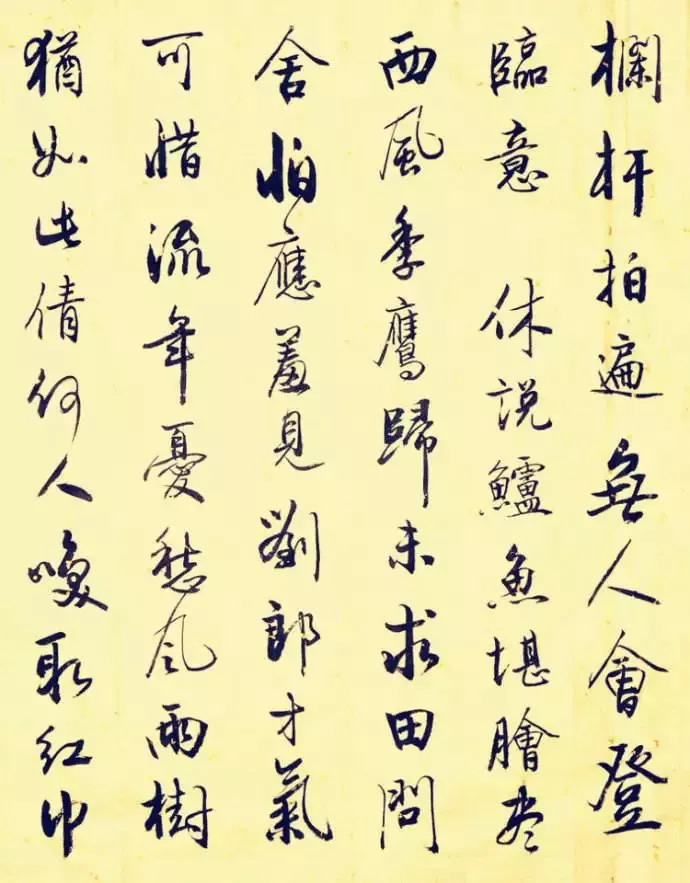 欄杆拍遍無人會登
臨意 休說鱸魚堪膾尽
西風季鷹歸未求田問
舍怕應羞見劉郎才氣
可惜流年憂愁风雨樹
猶如此倩何人喚取紅巾